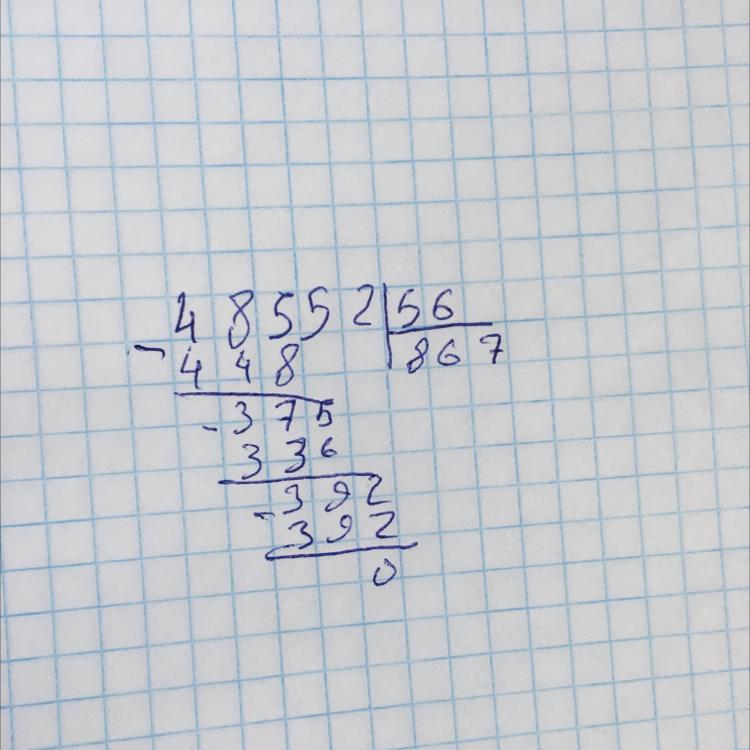 48552|56
- 448 |867
- 375
336
- 392
392
0